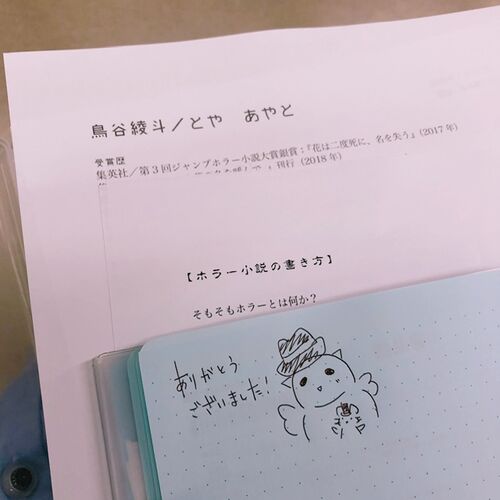 鳥谷綾斗/とや あやと
受賞歴
集英社/第3回ジャンプホラー小説大賞銀賞:『花は二度死に、名を失う』(2017年)
刊行(2018年)
【ホラー小説の書き方】
そもそもホラーとは何か?
ありがとう
ございました!